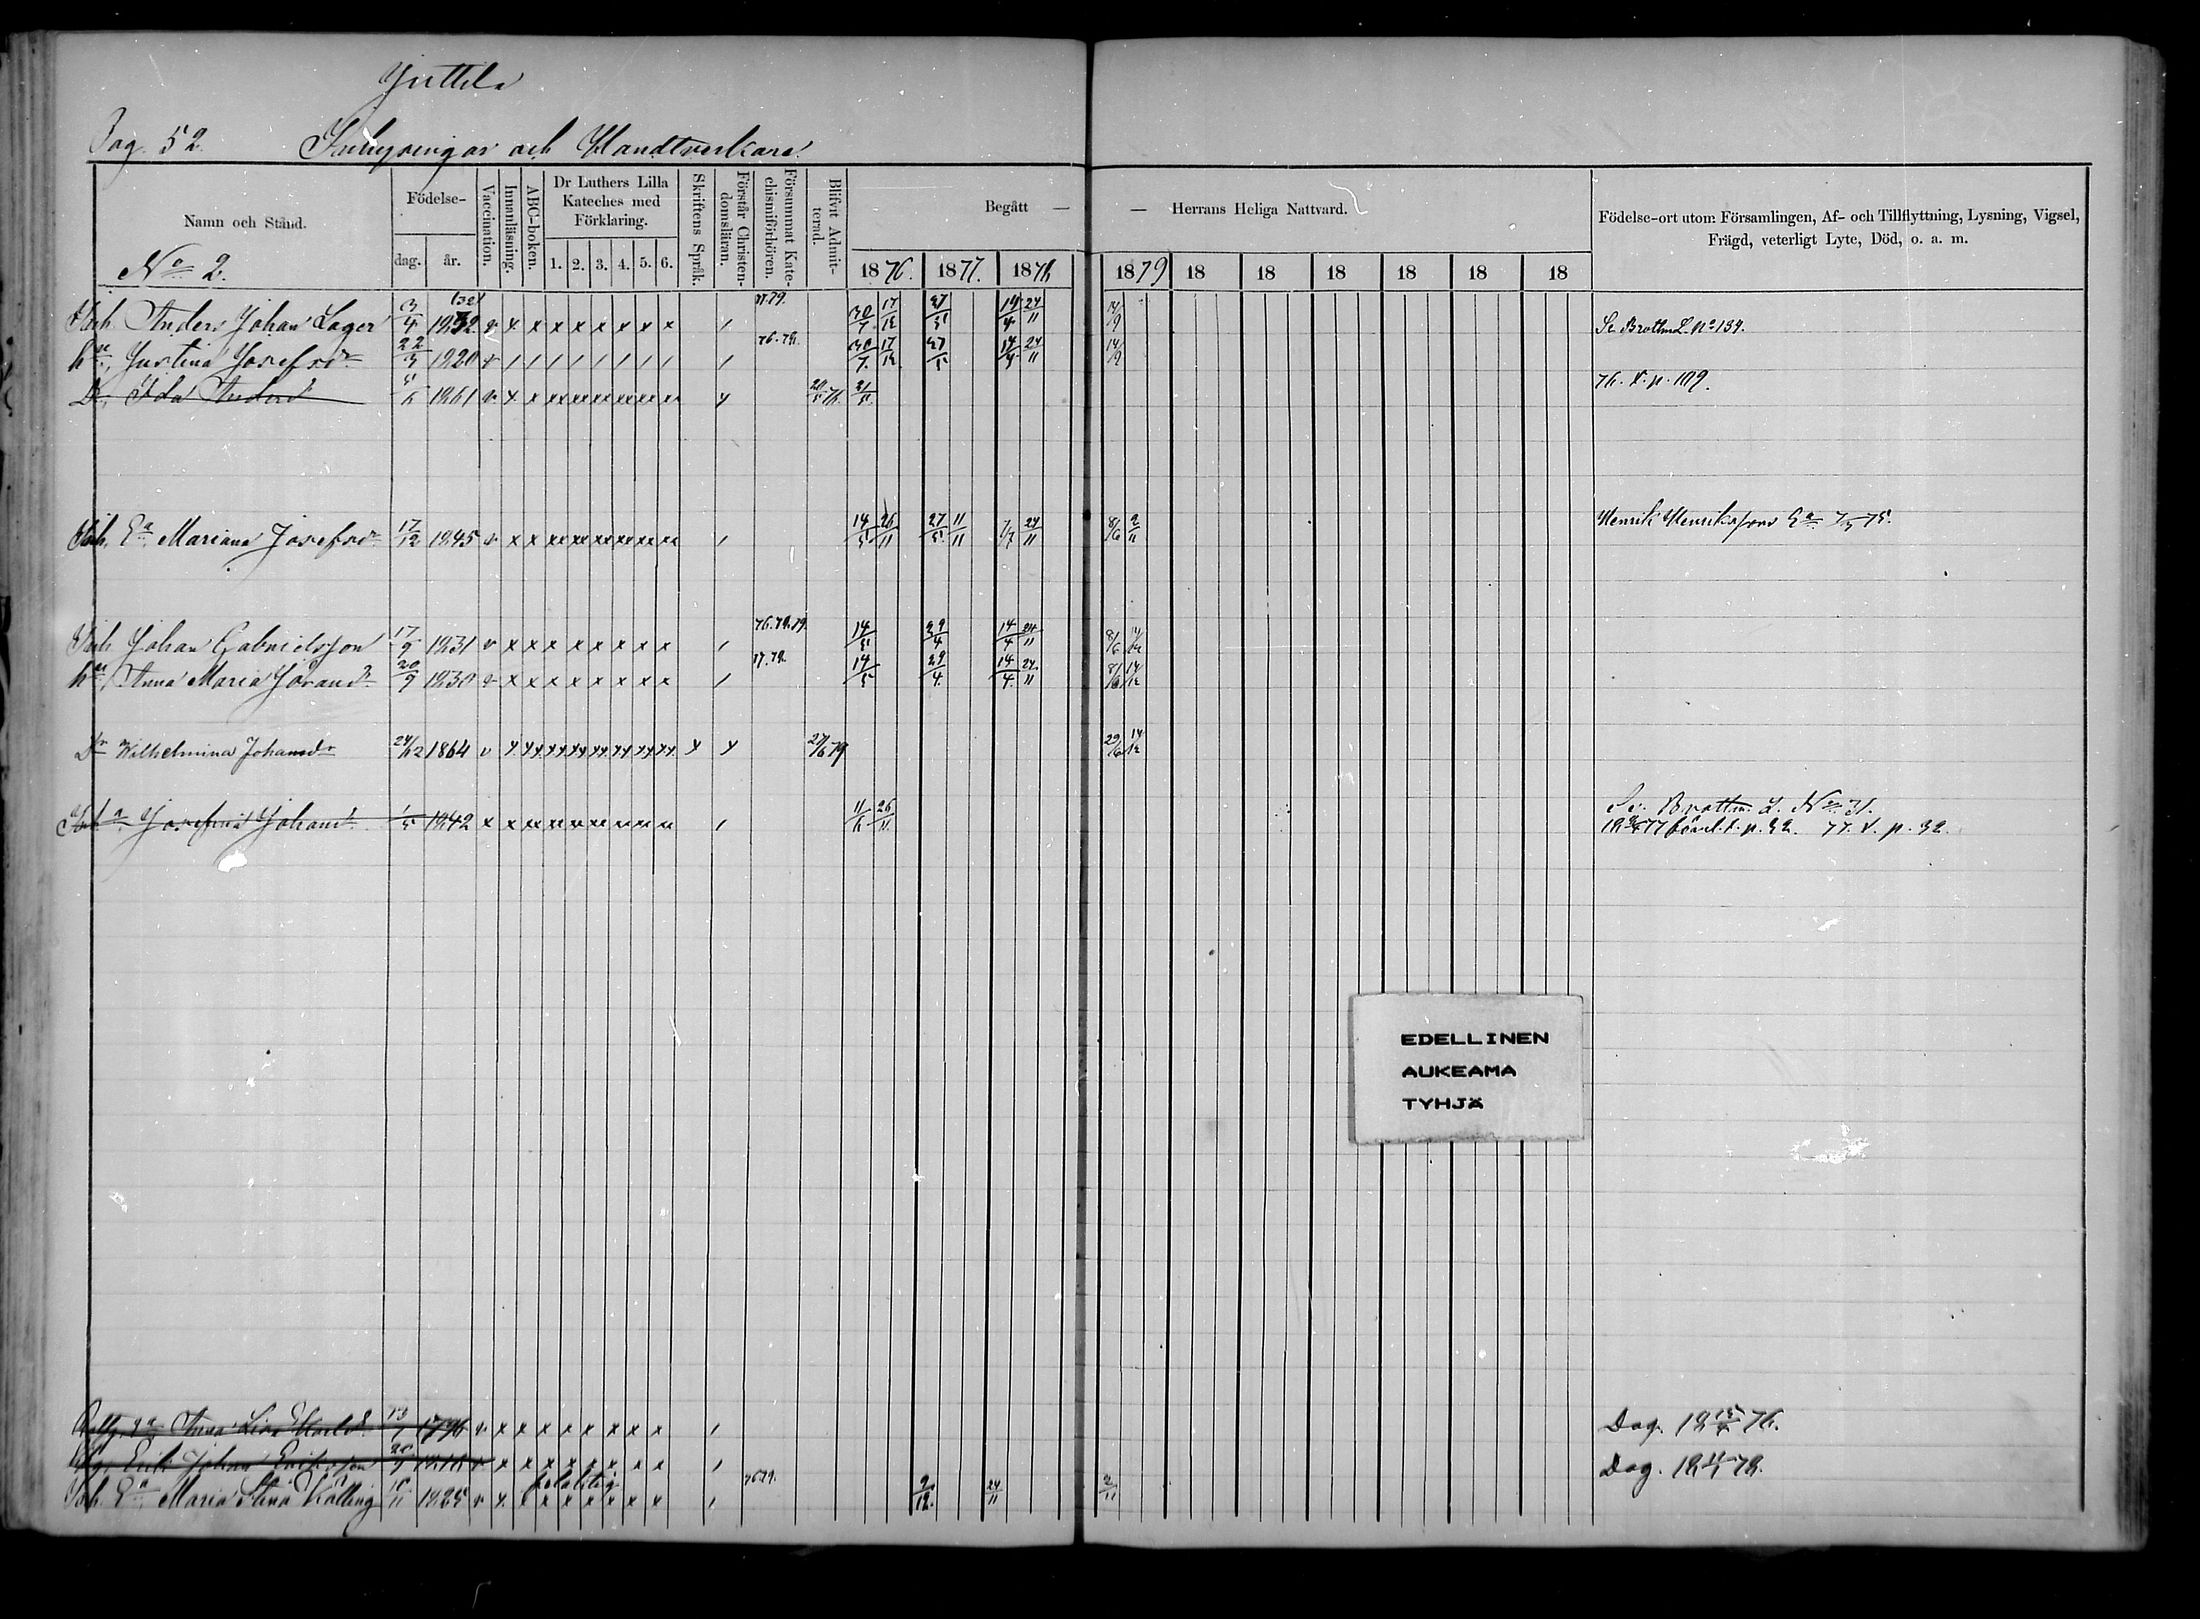 Juttila
Pag. 52. Inhysingar och Handtverkare.
Namn och Stånd.
Födelse-
dag. år.
Vaccination.
Innanläsning.
ABC-boken.
Dr Luthers Lilla Kateches med Förklaring.
1. 2. 3. 4. 5. 6.
Skriftens Språk.
Förstår Christendomsläran.
Försummat Katechismiförhören.
Blifvit Admitterad.
Begått — — Herrans Heliga Nattvard.
1876. 1877. 1878 1879 18 18 18 18 18 18
Födelse-ort utom Församlingen, Af- och Tillflyttning, Lysning, Vigsel,
Frägd, veterligt Lyte, Död, o. a. m.
No 2.
Inh. Anders Johan Lager 3/4 1832 v x x x x x x x x / 30/7 17/12 27/5 14/4 24/11 14/9 Se Brottm L. No 134.
hu, Justina Josefsdr 22/3 1820 v / / / / / / / / / 76.78. 30/7. 17/12 27/5 14/4 24/11 14/9
Dr, Ida Andersdr 1861 v x x xx xx xx xx xx xx x 76. v. p. 109.
Inh. Ea Mariana Josefsdr 17/12 1845 v x x xx xx xx xx xx xx / 14/5 26/11 27/5 11/11 7/7 24/11 8/6 2/11 Henrik Henrikssons Ea 75.
Inh Johan Gabrielsson 17/9 1831 v x x x x x x x x / 76.78.79. 14/5 29/4 14/4 24/11 8/6 14/12
hu, Anna Maria Göransdr 20/9 1830 v x x x x x x x x / 77.78. 14/5 29/4. 14/4. 24/11 8/6 14/12
Dr Wilhelmina Johansdr 24/12 1864 v x xx xx xx xx xx xx xx x x 27/6 79 29/6 14/12
Josefina Johansdr 1/5 1842 x x x xx xx xx xx xx xx / 11/6 26/11 Se Brottm. L. No 31.
77. v. p. 32.
Anna Lisa Karlsdr 13/1 1796 v x x x x x x x x / Dog. 18 76.
Erik Johan Eriksson v x x x x x x x x / Dog. 18 78.
Inh. Ea Maria Stina Källing 1825 v x x x x x x x x / 9/12. 24/11 2/11
EDELLINEN
AUKEAMA
TYHJÄ